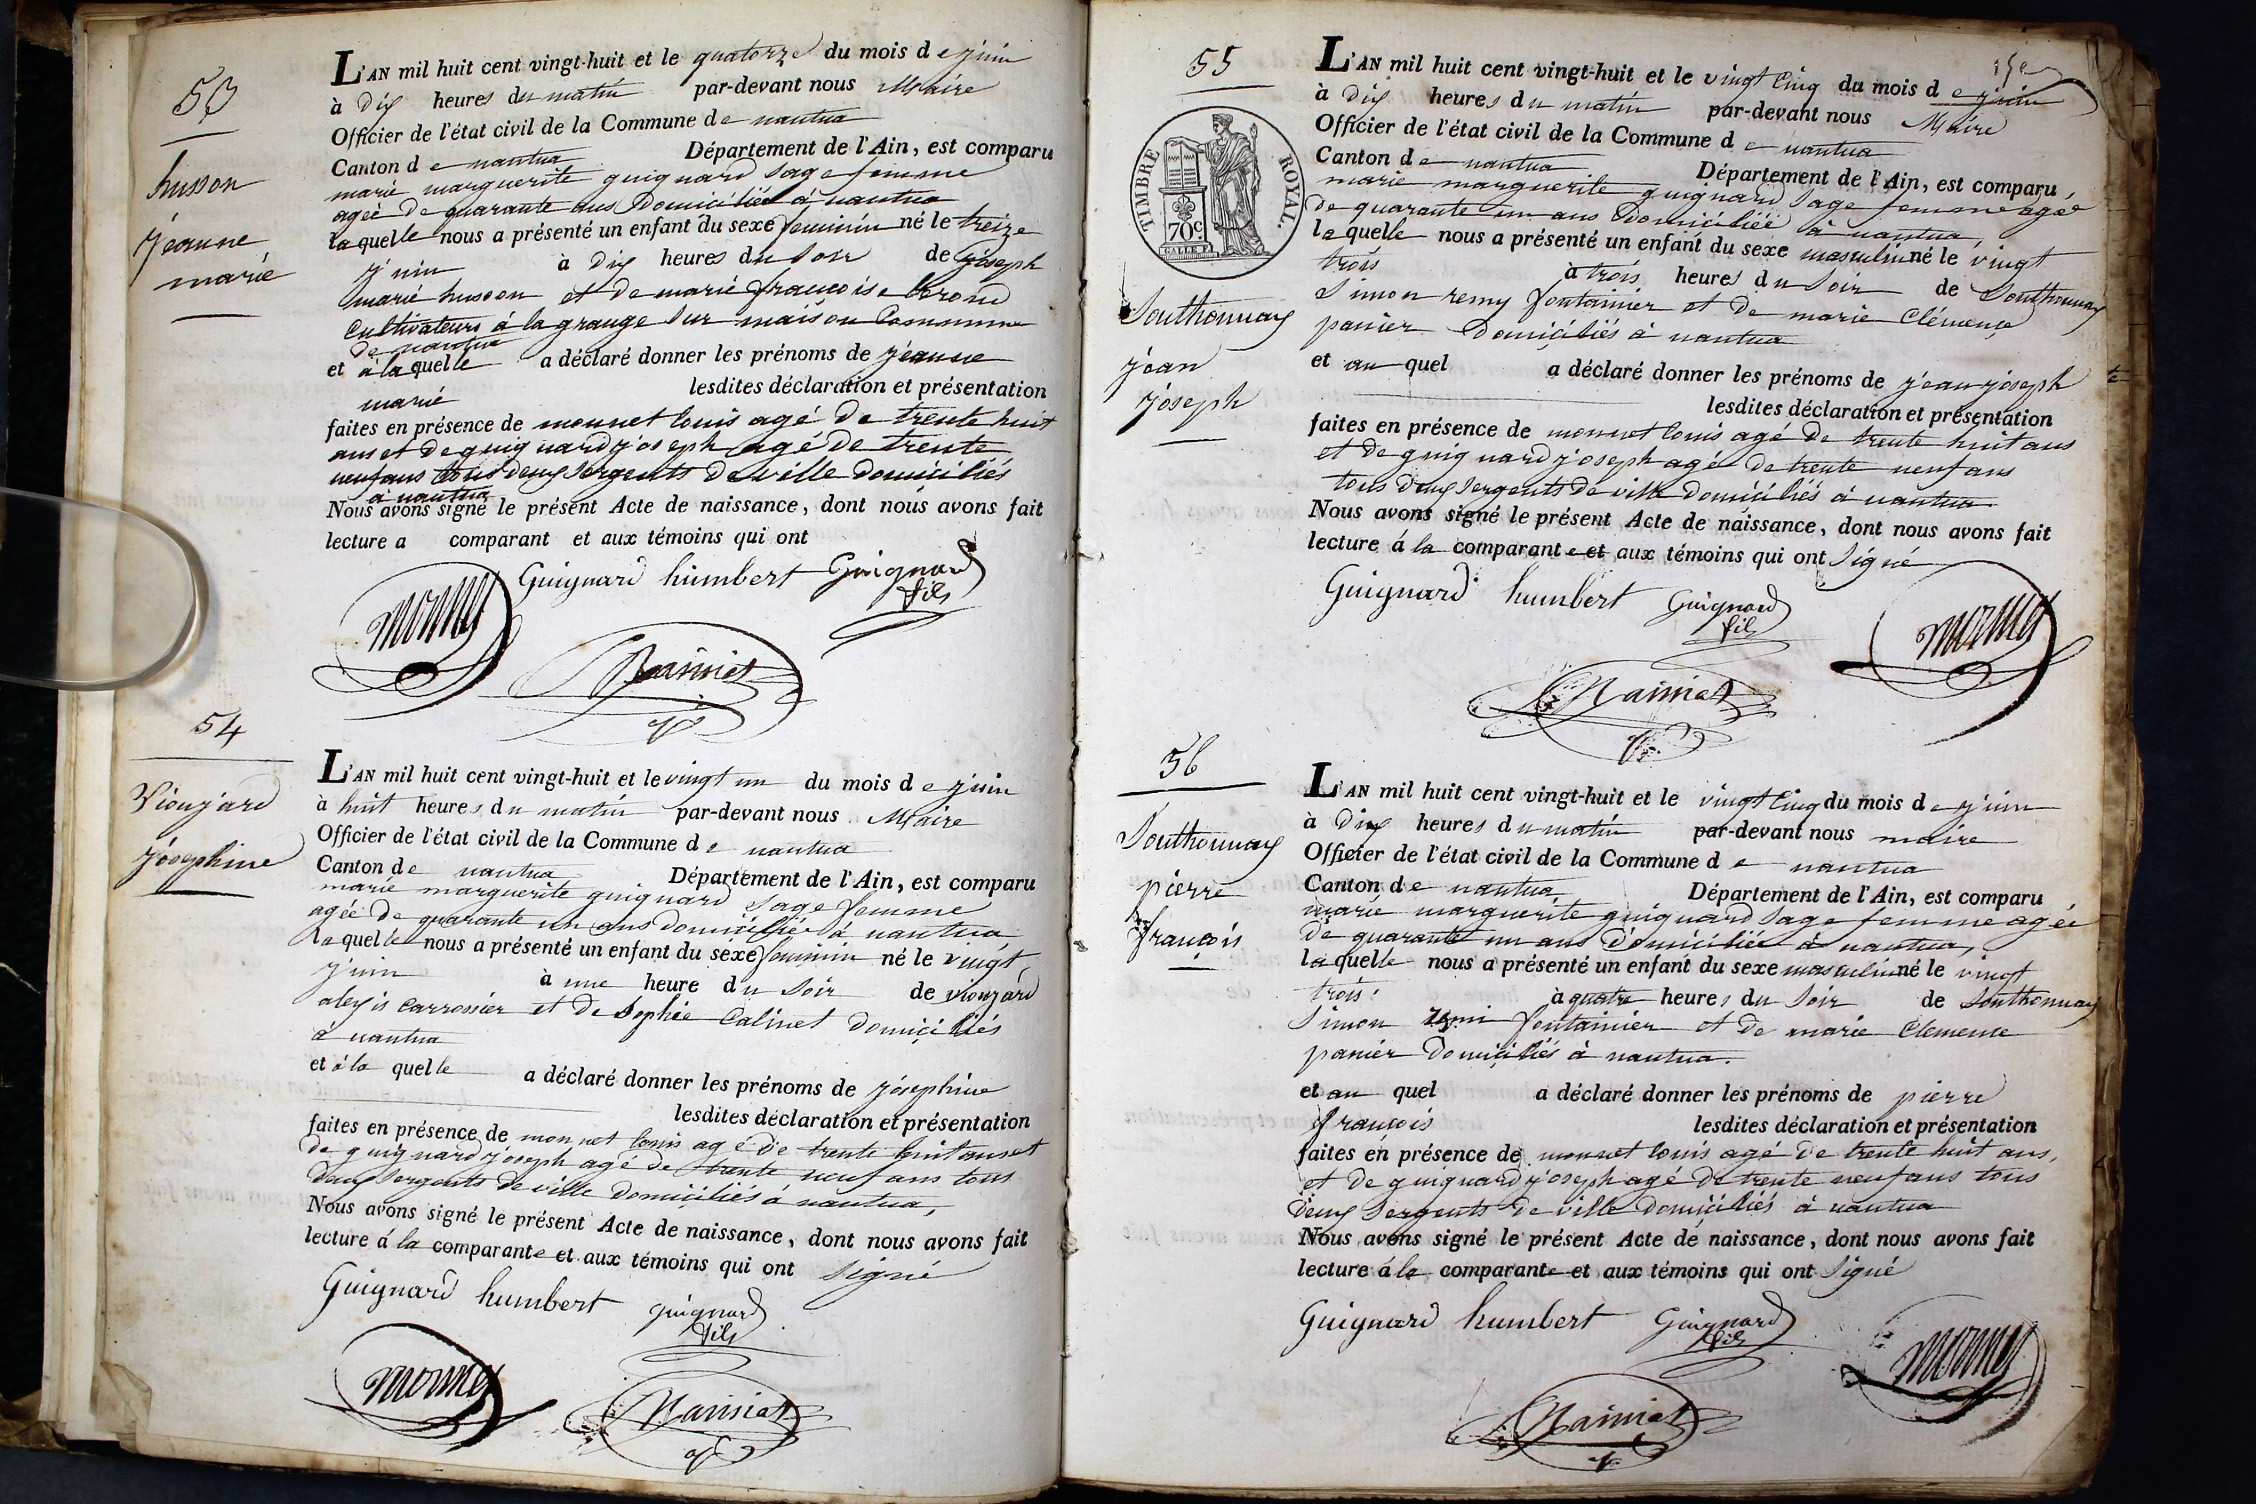 53
husson
jeanne
marie
L'AN mil huit cent vingt-huit et le quatorze du mois de juin
à dix heures du matin par-devant nous Maire
Officier de l'état civil de la Commune de nantua
Canton de nantua Département de l'Ain, est comparu
marie marguerite guignard sage femme
agée de quarante ans domiciliée à nantua
laquelle nous a présenté un enfant du sexe feminin né le treize
juin à dix heures du soir de joseph
marie husson et de marie françoise
cultivateurs à la grange sur maison Commune
de nantua
et à la quelle a déclaré donner les prénoms de jeanne
marie lesdites déclaration et présentation
faites en présence de monnet louis agé de trente huit
ans et de guignard joseph agé de trente
neuf ans tous deux sergents de ville domiciliés
à nantua
Nous avons signé le présent Acte de naissance, dont nous avons fait
lecture a comparant et aux témoins qui ont
Guignard humbert Guignard
fils
monnet
54
Vionjard
josephine
L'AN mil huit cent vingt-huit et le vingt un du mois de juin
à huit heures du matin par-devant nous Maire
Officier de l'état civil de la Commune de nantua
Canton de nantua Département de l'Ain, est comparu
marie marguerite guignard sage femme
agée de quarante un ans domiciliée à nantua
laquelle nous a présenté un enfant du sexe feminin né le vingt
juin à une heure du soir de vionjard
alexis carrossier et de sophie Calinet domiciliés
à nantua
et à la quelle a déclaré donner les prénoms de josephine
lesdites déclaration et présentation
faites en présence de monnet louis agé de trente huit ans et
de guignard joseph agé de trente neuf ans tous
deux sergents de ville domiciliés à nantua,
Nous avons signé le présent Acte de naissance, dont nous avons fait
lecture á la comparante et aux témoins qui ont signé
Guignard humbert guignard
fils
monnet
55
TIMBRE ROYAL.
70c
Southonnay
jean
joseph
L'AN mil huit cent vingt-huit et le vingt cinq du mois de juin
à dix heures du matin par-devant nous Maire
Officier de l'état civil de la Commune de nantua
Canton de nantua Département de l'Ain, est comparu
marie marguerite guignard sage femme agée
de quarante un ans domiciliée à nantua,
laquelle nous a présenté un enfant du sexe masculin né le vingt
trois à trois heures du soir de Southonnay
Simon remy fontainier et de marie Clémence
panier domiciliés à nantua
et au quel a déclaré donner les prénoms de jean joseph
lesdites déclaration et présentation
faites en présence de monnet louis agé de trente huit ans
et de guignard joseph agé de trente neuf ans
tous deux sergents de ville domiciliés à nantua
Nous avons signé le présent Acte de naissance, dont nous avons fait
lecture á la comparante et aux témoins qui ont signé
Guignard humbert Guignard
fils
monnet
56
Southonnay
pierre
françois
L'AN mil huit cent vingt-huit et le vingt cinq du mois de juin
à dix heures du matin par-devant nous maire
Officier de l'état civil de la Commune de nantua
Canton de nantua Département de l'Ain, est comparu
marie marguerite guignard sage femme agée
de quarante un ans domiciliée à nantua,
laquelle nous a présenté un enfant du sexe masculin né le vingt
trois à quatre heures du soir de Southonnay
Simon remi fontainier et de marie Clemence
panier domiciliés à nantua.
et au quel a déclaré donner les prénoms de pierre
françois lesdites déclaration et présentation
faites en présence de monnet louis agé de trente huit ans,
et de guignard joseph agé de trente neuf ans tous
deux sergents de ville domiciliés à nantua
Nous avons signé le présent Acte de naissance, dont nous avons fait
lecture á la comparante et aux témoins qui ont signé
Guignard humbert Guignard
fils
monnet